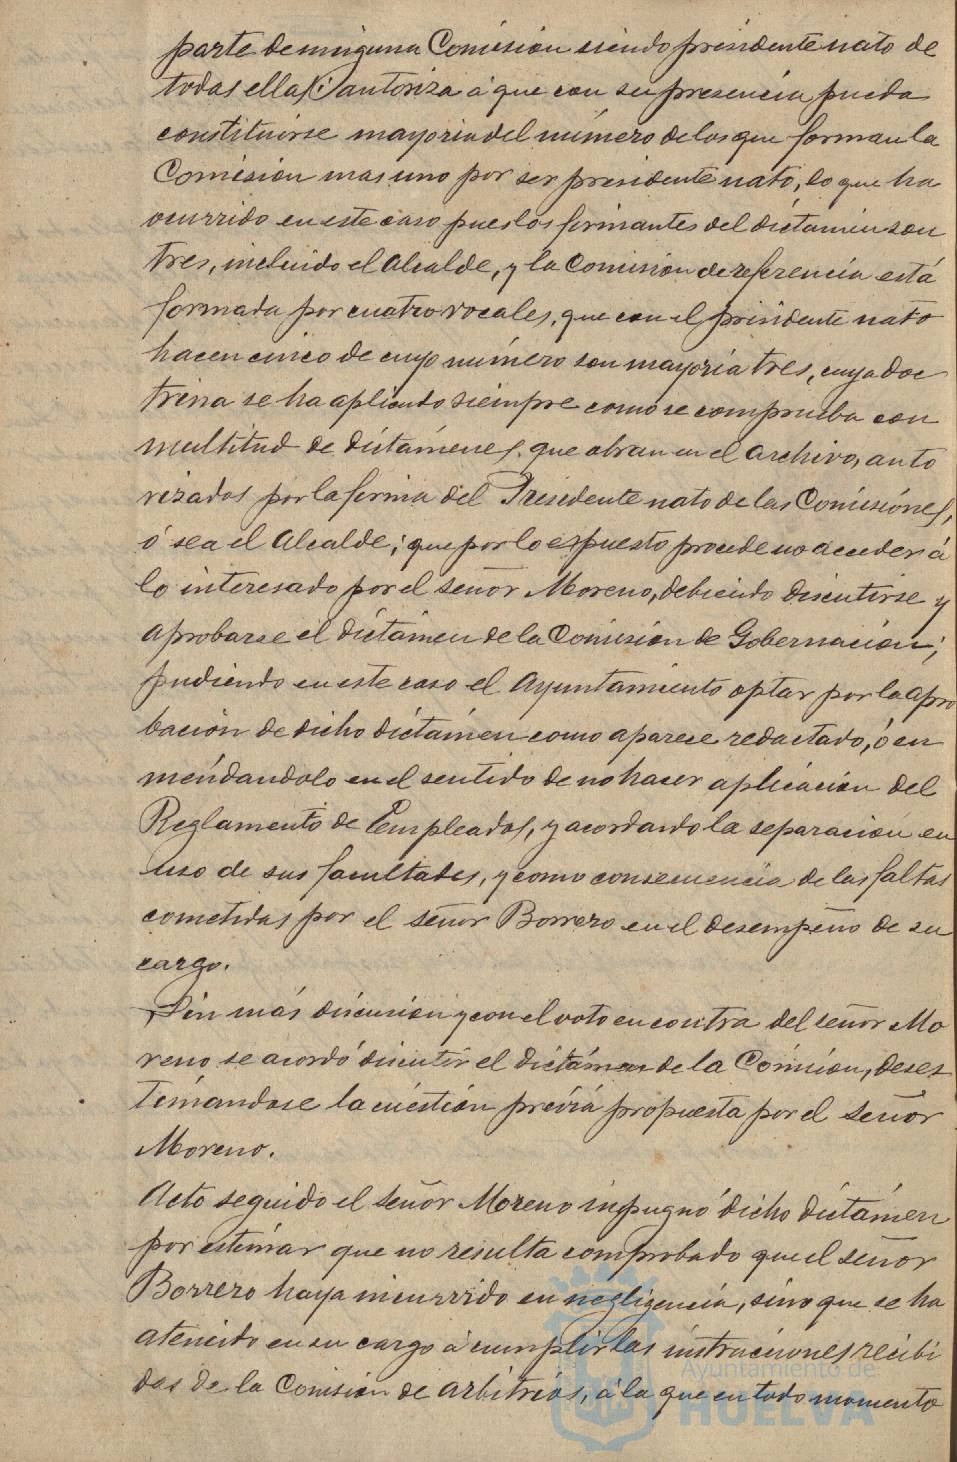 parte de ninguna Comisión siendo presidente nato de
todas ellas, autoriza á que con su presencia pueda
constituirse mayoria del número de los que forman la
Comisión mas uno por ser presidente nato, lo que ha
ocurrido en este caso pues los firmantes del dictamen son
tres, incluido el Alcalde, y la Comisión de referencia está
formada por cuatro vocales, que con el presidente nato
hacen cinco de cuyo número son mayoría tres, cuya doc
trina se ha aplicado siempre como se comprueba con
multitud de dictámenes que obran en el archivo, auto
rizados por la firma del Presidente nato de las Comisiónes,
ó sea el Alcalde; que por lo espuesto procede no acceder á
lo interesado por el señor Moreno, debiendo discutirse y
aprobarse el dictámen de la Comisión de Gobernación;
pudiendo en este caso el Ayuntamiento optar por la apro
bación de dicho dictámen como aparece redactado, ó en
mendandolo en el sentido de no hacer aplicación del
Reglamento de Empleados, y acordando la separación en
uso de sus facultades, y como consecuencia de las faltas
cometidas por el señor Borrero en el desempeño de su
cargo.
Sin más discusión y con el voto en contra del señor Mo
reno se acordó discutir el dictámen de la Comisión, deses
timandose la cuestión prévia propuesta por el señor
Moreno.
Acto seguido el señor Moreno impugnó dicho dictámen
por estimar que no resulta comprobado que el señor
Borrero haya incurrido en negligencia, sino que se ha
atenido en su cargo á cumplir las instrucciones recibi
das de la Comisión de arbitrios, á la que en todo momento
Ayuntamiento de
HUELVA